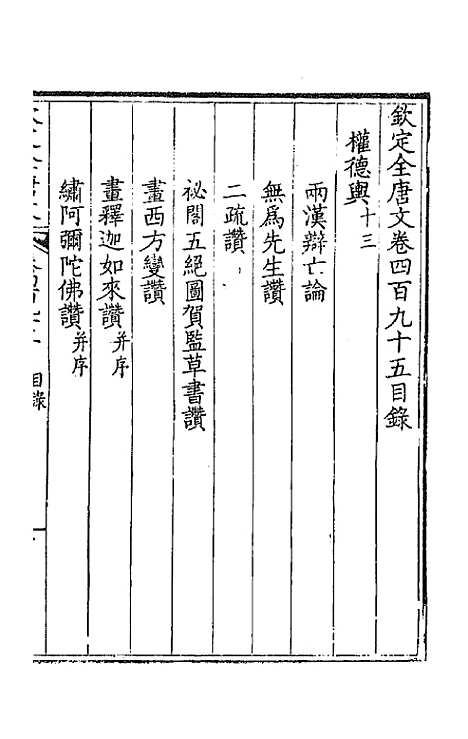 欽定全唐文卷四百九十五目錄
權德輿十三
兩漢辯亡論
無爲先生讚
二疏讚
祕閣五絕圖賀監草書讚
畫西方變讚
畫釋迦如來讚并序
繡阿彌陀佛讚并序
目錄